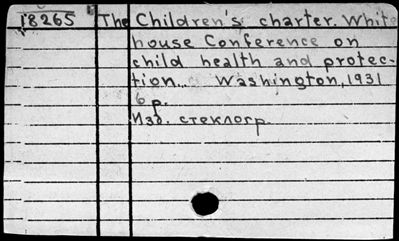 18265 The Children's charter. White
house Conference on
child health and protec-
tion... Washington, 1931
6 p.
Изд. стеклогр.